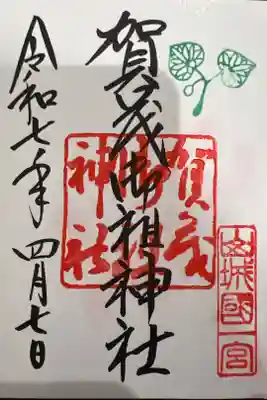 山城國一宮
賀茂御祖神社
賀茂御祖神社
令和七年四月七日